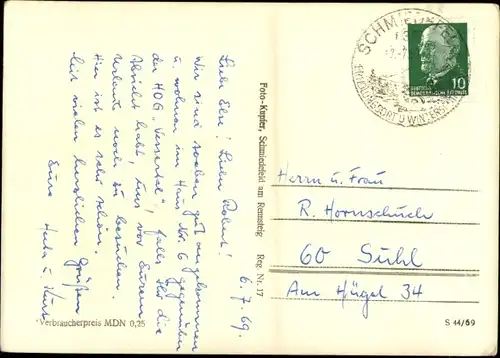 6. 7. 69.
Liebe Else! Lieber Robert!
Wir sind soeben gut angekommen
u. wohnen im Haus Nr. 6 gegenüber
der HOG „Vessertal“, falls Ihr die
Absicht habt, uns vor Eurem
Urlaub noch zu besuchen.
Hier ist es sehr schön.
Mit vielen herzlichen Grüßen
Eure Herta u. Kurt
Verbraucherpreis MDN 0,25
Foto-Kupfer, Schmiedefeld am Rennsteig Reg Nr. 17
SCHMIEDEFELD
ERHOLUNGSORT U WINTER
DEUTSCHE
DEMOKRATISCHE REPUBLIK
10
Herrn u. Frau
R. Hornschuch
60 Suhl
Am Hügel 34
S 44/69